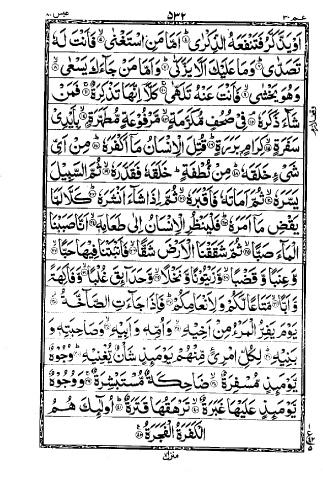 عبس ٨٠ ٥٣٢ عم ٣٠
اَوۡ يَذَّكَّرُ فَتَنۡفَعَهُ الذِّكۡرٰىؕ﴿۴﴾ اَمَّا مَنِ اسۡتَغۡنٰىۙ﴿۵﴾ فَاَنۡتَ لَهٗ
تَصَدّٰىؕ﴿۶﴾ وَمَا عَلَيۡكَ اَلَّا يَزَّكّٰىؕ﴿۷﴾ وَاَمَّا مَنۡ جَآءَكَ يَسۡعٰىۙ﴿۸﴾
وَهُوَ يَخۡشٰىۙ﴿۹﴾ فَاَنۡتَ عَنۡهُ تَلَهّٰىۚ﴿۱۰﴾ كَلَّاۤ اِنَّهَا تَذۡكِرَةٌۚ﴿۱۱﴾ فَمَنۡ
شَآءَ ذَكَرَهٗۘ﴿۱۲﴾ فِىۡ صُحُفٍ مُّكَرَّمَةٍۙ﴿۱۳﴾ مَّرۡفُوۡعَةٍ مُّطَهَّرَةٍۙ﴿۱۴﴾ بِاَيۡدِىۡ
سَفَرَةٍۙ﴿۱۵﴾ كِرَامٍۢ بَرَرَةٍؕ﴿۱۶﴾ قُتِلَ الۡاِنۡسَانُ مَاۤ اَكۡفَرَهٗؕ﴿۱۷﴾ مِنۡ اَىِّ
شَىۡءٍ خَلَقَهٗؕ﴿۱۸﴾ مِنۡ نُّطۡفَةٍؕ خَلَقَهٗ فَقَدَّرَهٗۙ﴿۱۹﴾ ثُمَّ السَّبِيۡلَ
يَسَّرَهٗۙ﴿۲۰﴾ ثُمَّ اَمَاتَهٗ فَاَقۡبَرَهٗۙ﴿۲۱﴾ ثُمَّ اِذَا شَآءَ اَنۡشَرَهٗؕ﴿۲۲﴾ كَلَّا لَمَّا
يَقۡضِ مَاۤ اَمَرَهٗؕ﴿۲۳﴾ فَلۡيَنۡظُرِ الۡاِنۡسَانُ اِلٰى طَعَامِهٖۤۙ﴿۲۴﴾ اَنَّا صَبَبۡنَا
الۡمَآءَ صَبًّاۙ﴿۲۵﴾ ثُمَّ شَقَقۡنَا الۡاَرۡضَ شَقًّاۙ﴿۲۶﴾ فَاَنۡۢبَتۡنَا فِيۡهَا حَبًّاۙ﴿۲۷﴾
وَّعِنَبًا وَّقَضۡبًاۙ﴿۲۸﴾ وَّزَيۡتُوۡنًا وَّنَخۡلًاۙ﴿۲۹﴾ وَّحَدَآئِقَ غُلۡبًاۙ﴿۳۰﴾ وَّفَاكِهَةً
وَّاَبًّاۙ﴿۳۱﴾ مَّتَاعًا لَّكُمۡ وَلِاَنۡعَامِكُمۡؕ﴿۳۲﴾ فَاِذَا جَآءَتِ الصَّآخَّةُ﴿۳۳﴾
يَوۡمَ يَفِرُّ الۡمَرۡءُ مِنۡ اَخِيۡهِۙ﴿۳۴﴾ وَاُمِّهٖ وَاَبِيۡهِۙ﴿۳۵﴾ وَصَاحِبَتِهٖ وَ
بَنِيۡهِؕ﴿۳۶﴾ لِكُلِّ امۡرِىءٍ مِّنۡهُمۡ يَوۡمَئِذٍ شَاۡنٌ يُّغۡنِيۡهِؕ﴿۳۷﴾ وُجُوۡهٌ
يَّوۡمَئِذٍ مُّسۡفِرَةٌۙ﴿۳۸﴾ ضَاحِكَةٌ مُّسۡتَبۡشِرَةٌۚ﴿۳۹﴾ وَوُجُوۡهٌ
يَّوۡمَئِذٍ عَلَيۡهَا غَبَرَةٌۙ﴿۴۰﴾ تَرۡهَقُهَا قَتَرَةٌؕ﴿۴۱﴾ اُولٰٓئِكَ هُمُ
الۡكَفَرَةُ الۡفَجَرَةُ﴿۴۲﴾